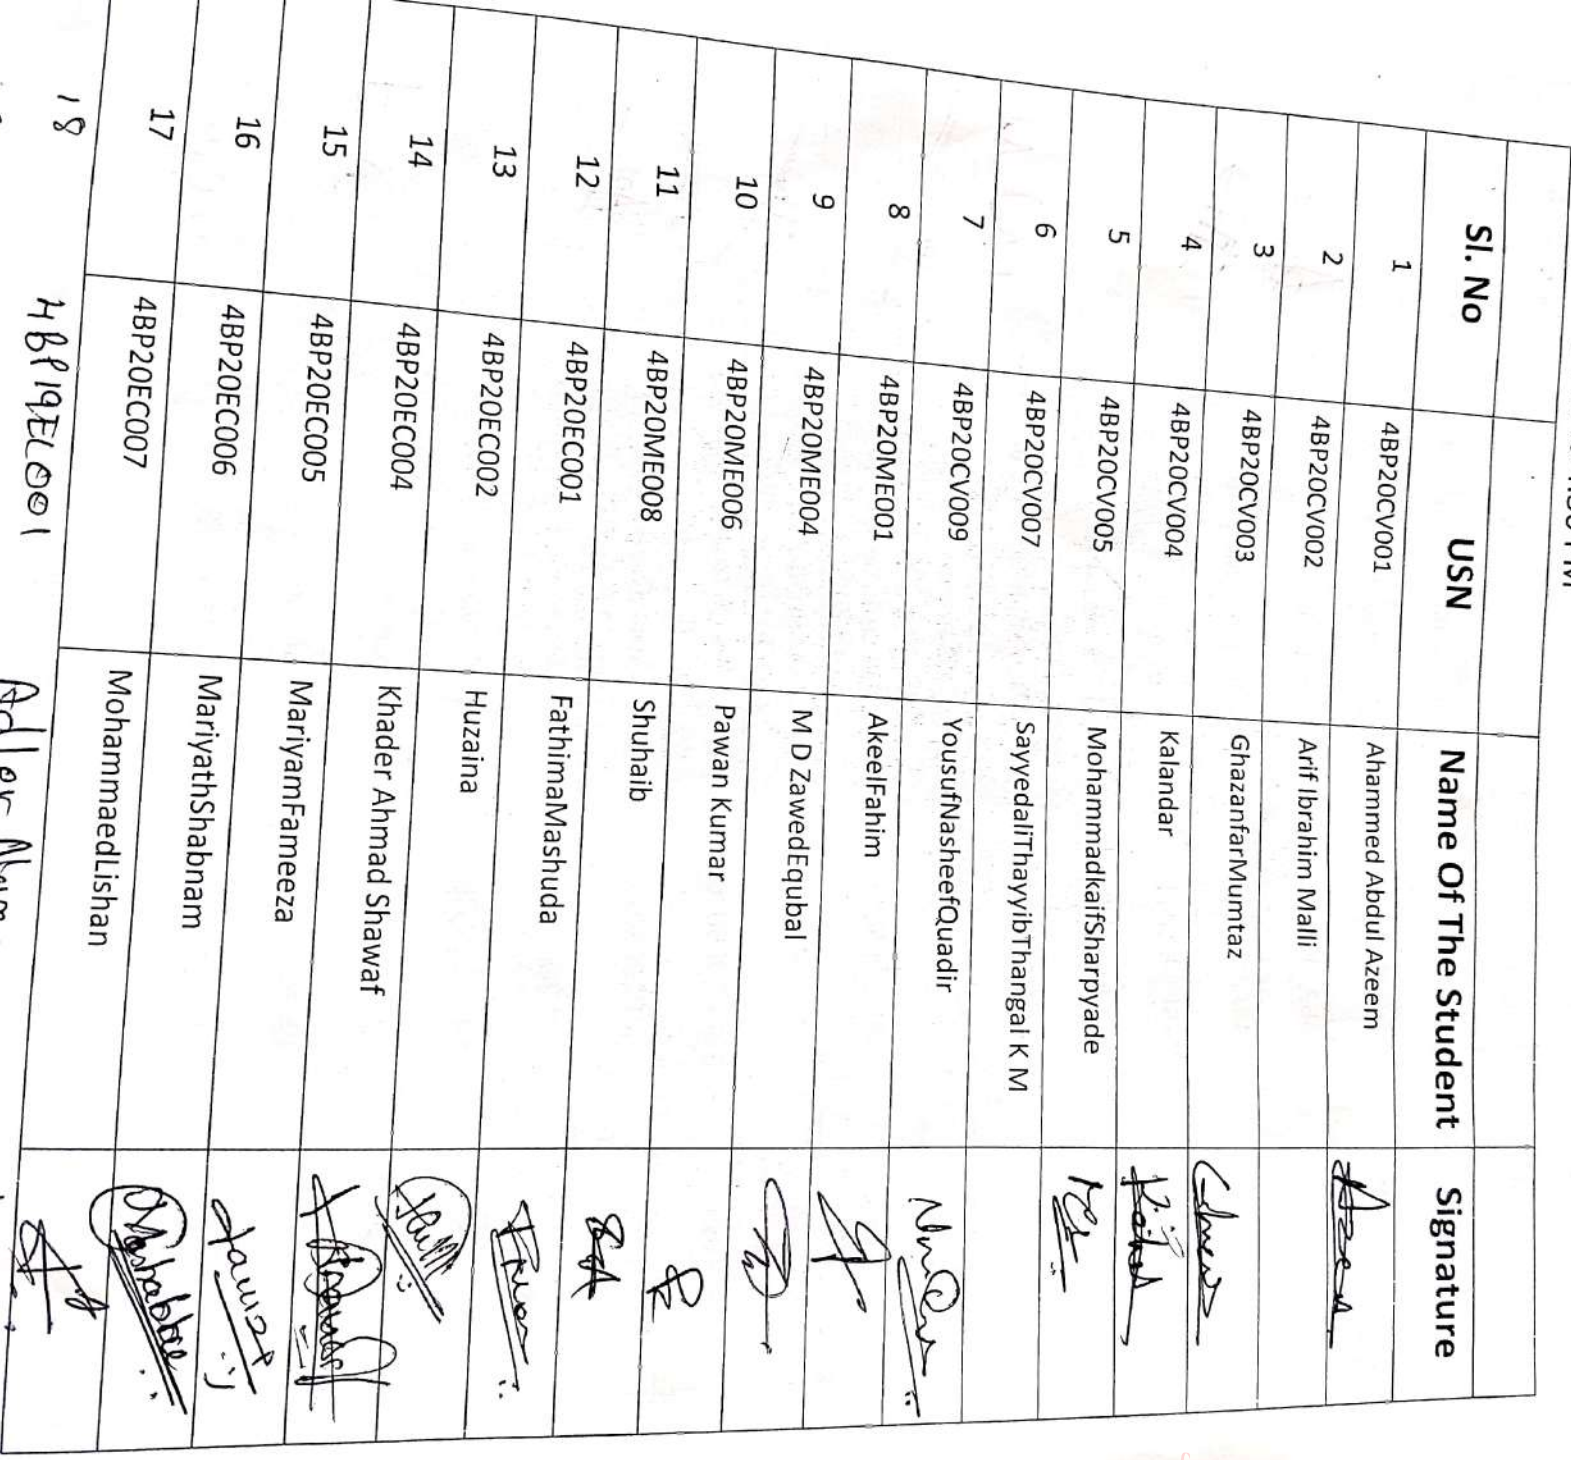 Sl. No USN Name Of The Student Signature
1 4BP20CV001 Ahammed Abdul Azeem
2 4BP20CV002 Arif Ibrahim Malli
3 4BP20CV003 GhazanfarMumtaz
4 4BP20CV004 Kalandar
5 4BP20CV005 MohammadkaifSharpyade
6 4BP20CV007 SayyedaliThayyibThangal K M
7 4BP20CV009 YousufNasheefQuadir
8 4BP20ME001 AkeelFahim
9 4BP20ME004 M D ZawedEqubal
10 4BP20ME006 Pawan Kumar
11 4BP20ME008 Shuhaib
12 4BP20EC001 FathimaMashuda
13 4BP20EC002 Huzaina
14 4BP20EC004 Khader Ahmad Shawaf
15 4BP20EC005 MariyamFameeza
16 4BP20EC006 MariyathShabnam
17 4BP20EC007 MohammaedLishan
18 4BP19EC001